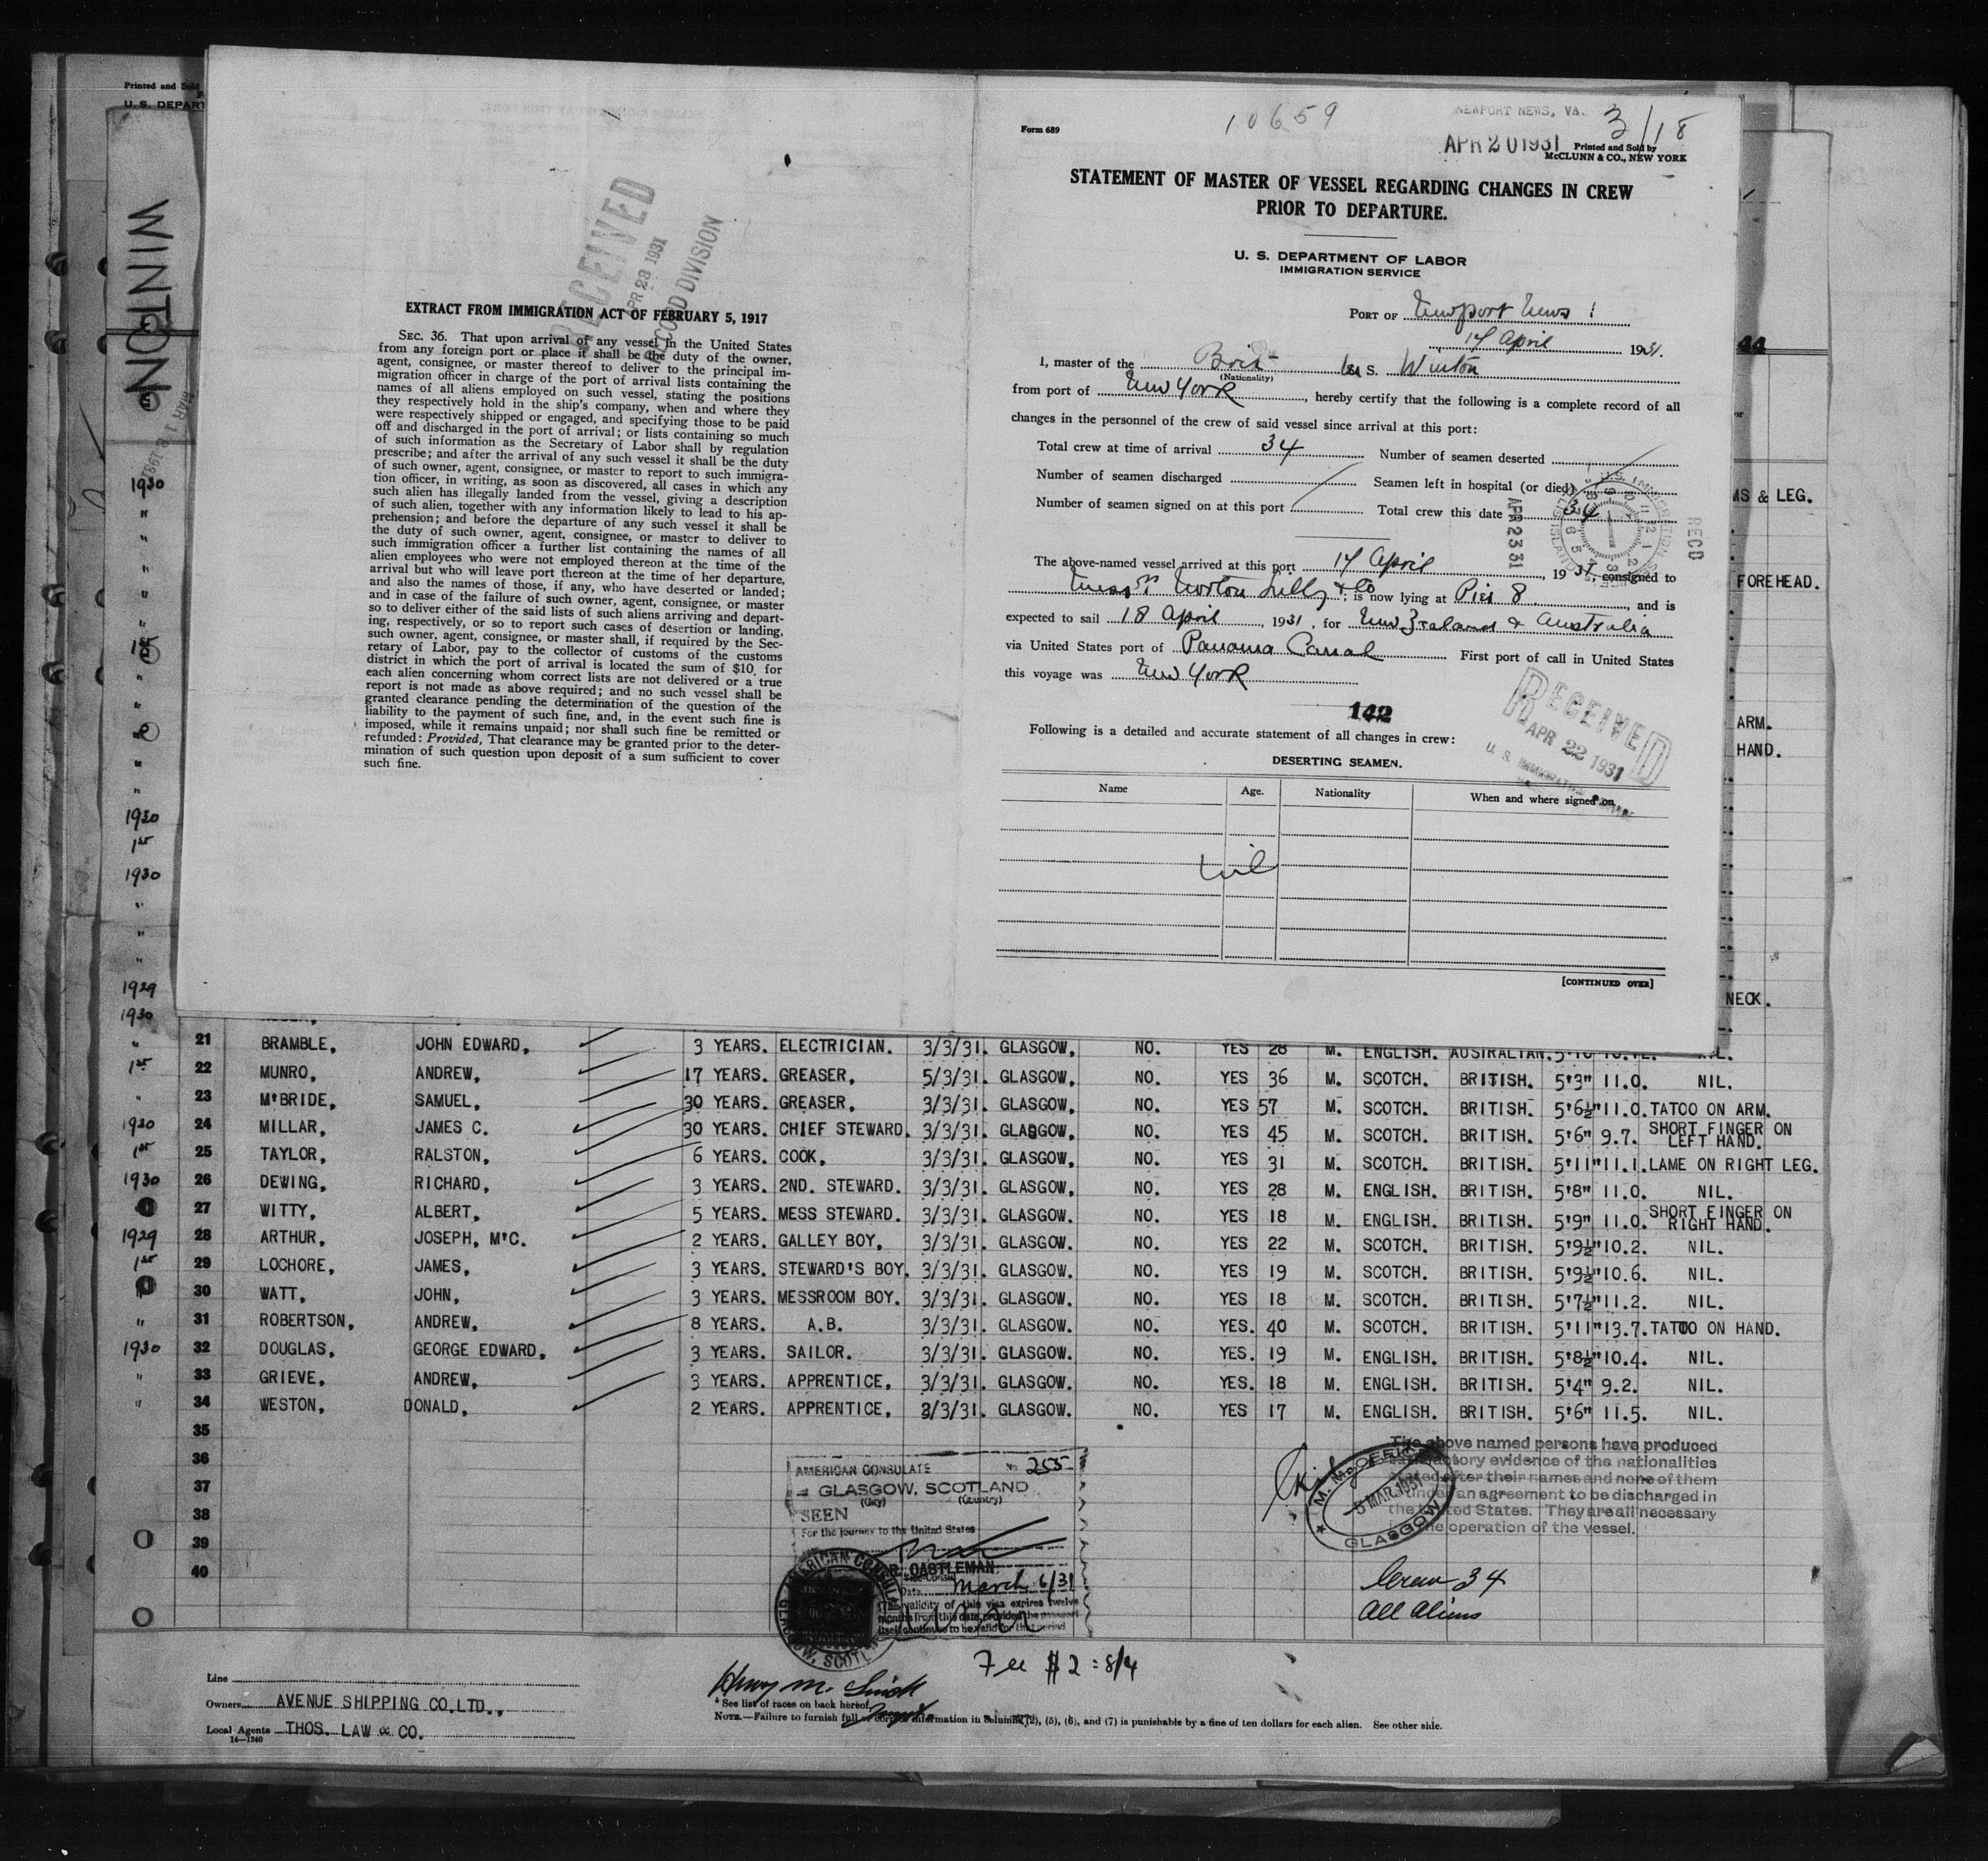 Printed and Sold
U. S. DEPART
WINTON
MAR 18 1931
RECEIVED
APR 28 1931
RECORD DIVISION
EXTRACT FROM IMMIGRATION ACT OF FEBRUARY 5, 1917
SEC. 36. That upon arrival of any vessel in the United States
from any foreign port or place it shall be the duty of the owner,
agent, consignee, or master thereof to deliver to the principal im-
migration officer in charge of the port of arrival lists containing the
names of all aliens employed on such vessel, stating the positions
they respectively hold in the ship's company, when and where they
were respectively shipped or engaged, and specifying those to be paid
off and discharged in the port of arrival; or lists containing so much
of such information as the Secretary of Labor shall by regulation
prescribe; and after the arrival of any such vessel it shall be the duty
of such owner, agent, consignee, or master to report to such immigra-
tion officer, in writing, as soon as discovered, all cases in which any
such alien has illegally landed from the vessel, giving a description
of such alien, together with any information likely to lead to his ap-
prehension; and before the departure of any such vessel it shall be
the duty of such owner, agent, consignee, or master to deliver to
such immigration officer a further list containing the names of all
alien employees who were not employed thereon at the time of the
arrival but who will leave port thereon at the time of her departure,
and also the names of those, if any, who have deserted or landed;
and in case of the failure of such owner, agent, consignee, or master
so to deliver either of the said lists of such aliens arriving and depart-
ing, respectively, or so to report such cases of desertion or landing,
such owner, agent, consignee, or master shall, if required by the Sec-
retary of Labor, pay to the collector of customs of the customs
district in which the port of arrival is located the sum of $10 for
each alien concerning whom correct lists are not delivered or a true
report is not made as above required; and no such vessel shall be
granted clearance pending the determination of the question of the
liability to the payment of such fine, and, in the event such fine is
imposed, while it remains unpaid; nor shall such fine be remitted or
refunded: Provided, That clearance may be granted prior to the deter-
mination of such question upon deposit of a sum sufficient to cover
such fine.
10659
NEWPORT NEWS, VA.
3/18
APR 20 1931
Form 689
Printed and Sold by
McCLUNN & CO., NEW YORK
STATEMENT OF MASTER OF VESSEL REGARDING CHANGES IN CREW
PRIOR TO DEPARTURE.
U. S. DEPARTMENT OF LABOR
IMMIGRATION SERVICE
PORT OF Newport News
17 April 1931.
I, master of the Brit S. Winton
(Nationality)
from port of New York, hereby certify that the following is a complete record of all
changes in the personnel of the crew of said vessel since arrival at this port:
Total crew at time of arrival 34 Number of seamen deserted
Number of seamen discharged Seamen left in hospital (or died)
Number of seamen signed on at this port Total crew this date 34
APR 23 31
RECD
The above-named vessel arrived at this port 17 April, 1931, consigned to
Messrs Norton Lilly & Co; is now lying at Pier 8, and is
expected to sail 18 April, 1931, for New Zealand & Australia
via United States port of Panama Canal First port of call in United States
this voyage was New York
142
RECEIVED
APR 22 1931
Following is a detailed and accurate statement of all changes in crew:
DESERTING SEAMEN.
Name Age. Nationality When and where signed on
Nil
[CONTINUED OVER]
44
MS & LEG.
FOREHEAD.
ARM.
HAND.
NECK.
1930
"
"
"
"
"
1st
"
"
"
1930
1st
1930
"
"
"
1929
1930
" 21 BRAMBLE, JOHN EDWARD, 3 YEARS. ELECTRICIAN. 3/3/31. GLASGOW, NO. YES 28 M. ENGLISH. AUSTRALIAN.
1st 22 MUNRO, ANDREW, 17 YEARS. GREASER, 5/3/31. GLASGOW, NO. YES 36 M. SCOTCH. BRITISH. 5'3" 11.0. NIL.
" 23 McBRIDE, SAMUEL, 30 YEARS. GREASER, 3/3/31. GLASGOW, NO. YES 57 M. SCOTCH. BRITISH. 5'6½" 11.0. TATOO ON ARM.
1930 24 MILLAR, JAMES C. 30 YEARS. CHIEF STEWARD. 3/3/31. GLASGOW, NO. YES 45 M. SCOTCH. BRITISH. 5'6" 9.7. SHORT FINGER ON LEFT HAND.
1st 25 TAYLOR, RALSTON, 6 YEARS. COOK, 3/3/31. GLASGOW, NO. YES 31 M. SCOTCH. BRITISH. 5'11" 11.1. LAME ON RIGHT LEG.
1930 26 DEWING, RICHARD, 3 YEARS. 2ND. STEWARD. 3/3/31. GLASGOW, NO. YES 28 M. ENGLISH. BRITISH. 5'8" 11.0. NIL.
27 WITTY, ALBERT, 5 YEARS. MESS STEWARD. 3/3/31. GLASGOW. NO. YES 18 M. ENGLISH. BRITISH. 5'9" 11.0. SHORT FINGER ON RIGHT HAND.
1929 28 ARTHUR, JOSEPH, McC. 2 YEARS. GALLEY BOY, 3/3/31. GLASGOW. NO. YES 22 M. SCOTCH. BRITISH. 5'9½" 10.2. NIL.
1st 29 LOCHORE, JAMES, 3 YEARS. STEWARD'S BOY. 3/3/31. GLASGOW. NO. YES 19 M. SCOTCH. BRITISH. 5'9½" 10.6. NIL.
30 WATT, JOHN, 3 YEARS. MESSROOM BOY. 3/3/31. GLASGOW. NO. YES 18 M. SCOTCH. BRITISH. 5'7½" 11.2. NIL.
" 31 ROBERTSON, ANDREW, 8 YEARS. A.B. 3/3/31. GLASGOW. NO. YES. 40 M. SCOTCH. BRITISH. 5'11" 13.7. TATOO ON HAND.
1930 32 DOUGLAS, GEORGE EDWARD, 3 YEARS. SAILOR. 3/3/31. GLASGOW. NO. YES. 19 M. ENGLISH. BRITISH. 5'8½" 10.4. NIL.
" 33 GRIEVE, ANDREW, 3 YEARS. APPRENTICE, 3/3/31. GLASGOW. NO. YES. 18 M. ENGLISH. BRITISH. 5'4" 9.2. NIL.
" 34 WESTON, DONALD, 2 YEARS. APPRENTICE, 3/3/31. GLASGOW. NO. YES 17 M. ENGLISH. BRITISH. 5'6" 11.5. NIL.
35
36
37
38
39
40
AMERICAN CONSULATE No 255
GLASGOW, SCOTLAND
(City) (Country)
SEEN
For the journey to the United States
R. CASTLEMAN
Date March 6/31
The validity of this visa expires twelve
months from this date, provided the passport
itself continues to be valid for that period
The above named persons have produced
satisfactory evidence of the nationalities
stated after their names and none of them
under an agreement to be discharged in
the United States. They are all necessary
the operation of the vessel.
M. M. OFFICE
5 MAR 1931
GLASGOW
Crew 34
All Aliens
Fee $2 : 8/4
Line
Owners AVENUE SHIPPING CO. LTD.,
Local Agents THOS. LAW & CO.
14—1240
* See list of races on back hereof.
NOTE.—Failure to furnish full or correct information in columns (2), (5), (6), and (7) is punishable by a fine of ten dollars for each alien. See other side.